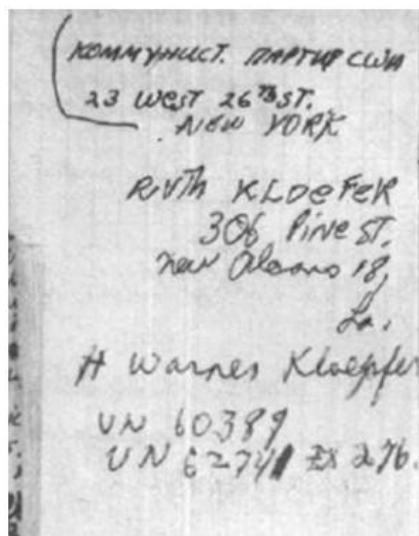 КОММУНИСТ. ПАРТИР США
23 WEST 26TH ST.
NEW YORK
RUTH KLOEFER
306 PINE ST.
New Oleans 18,
La.
H Warner Kloepfer
UN 60389
UN 62741 EX 276.